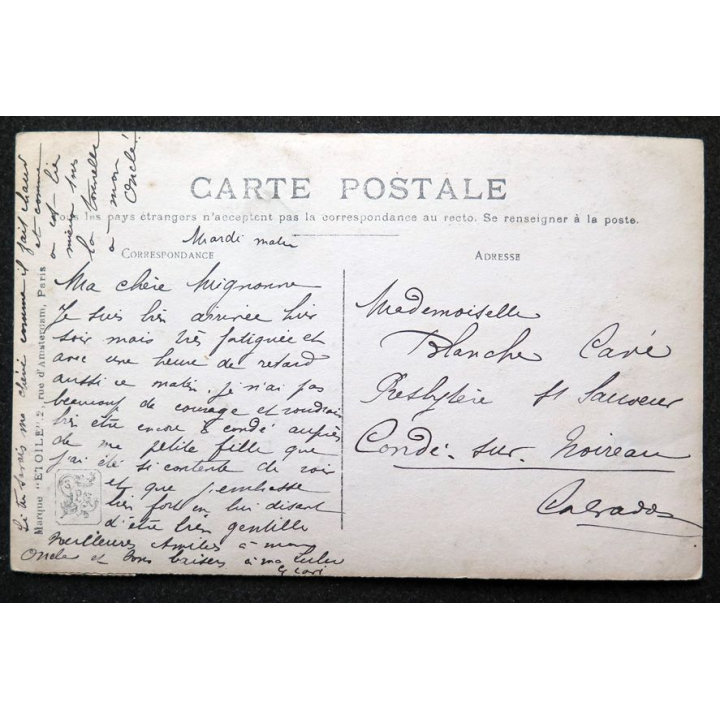 CARTE POSTALE
Tous les pays étrangers n'acceptent pas la correspondance au recto. Se renseigner à la poste.
Mardi matin
CORRESPONDANCE
Ma chère Mignonne
Je suis bien arrivée hier
soir mais très fatiguée et
avec une heure de retard
aussi ce matin je n'ai pas
beaucoup de courage et voudrais
bien être encore à condé auprès
de ma petite fille que
j'ai été si contente de voir
et que j'embrasse
bien fort en lui disant
d'être bien gentille
Meilleures Amitiés à mon
Oncle et bons baisers à ma Lulu
ADRESSE
Mademoiselle
Blanche Cavé
Presbytère St Sauveur
Condé-sur-Noireau
Calvados
Marque "ETOILE", 2, rue d'Amsterdam, Paris
Si tu savais ma chérie comme il fait chaud
et comme
on est
mieux sous
la tonnelle
à mon
Oncle